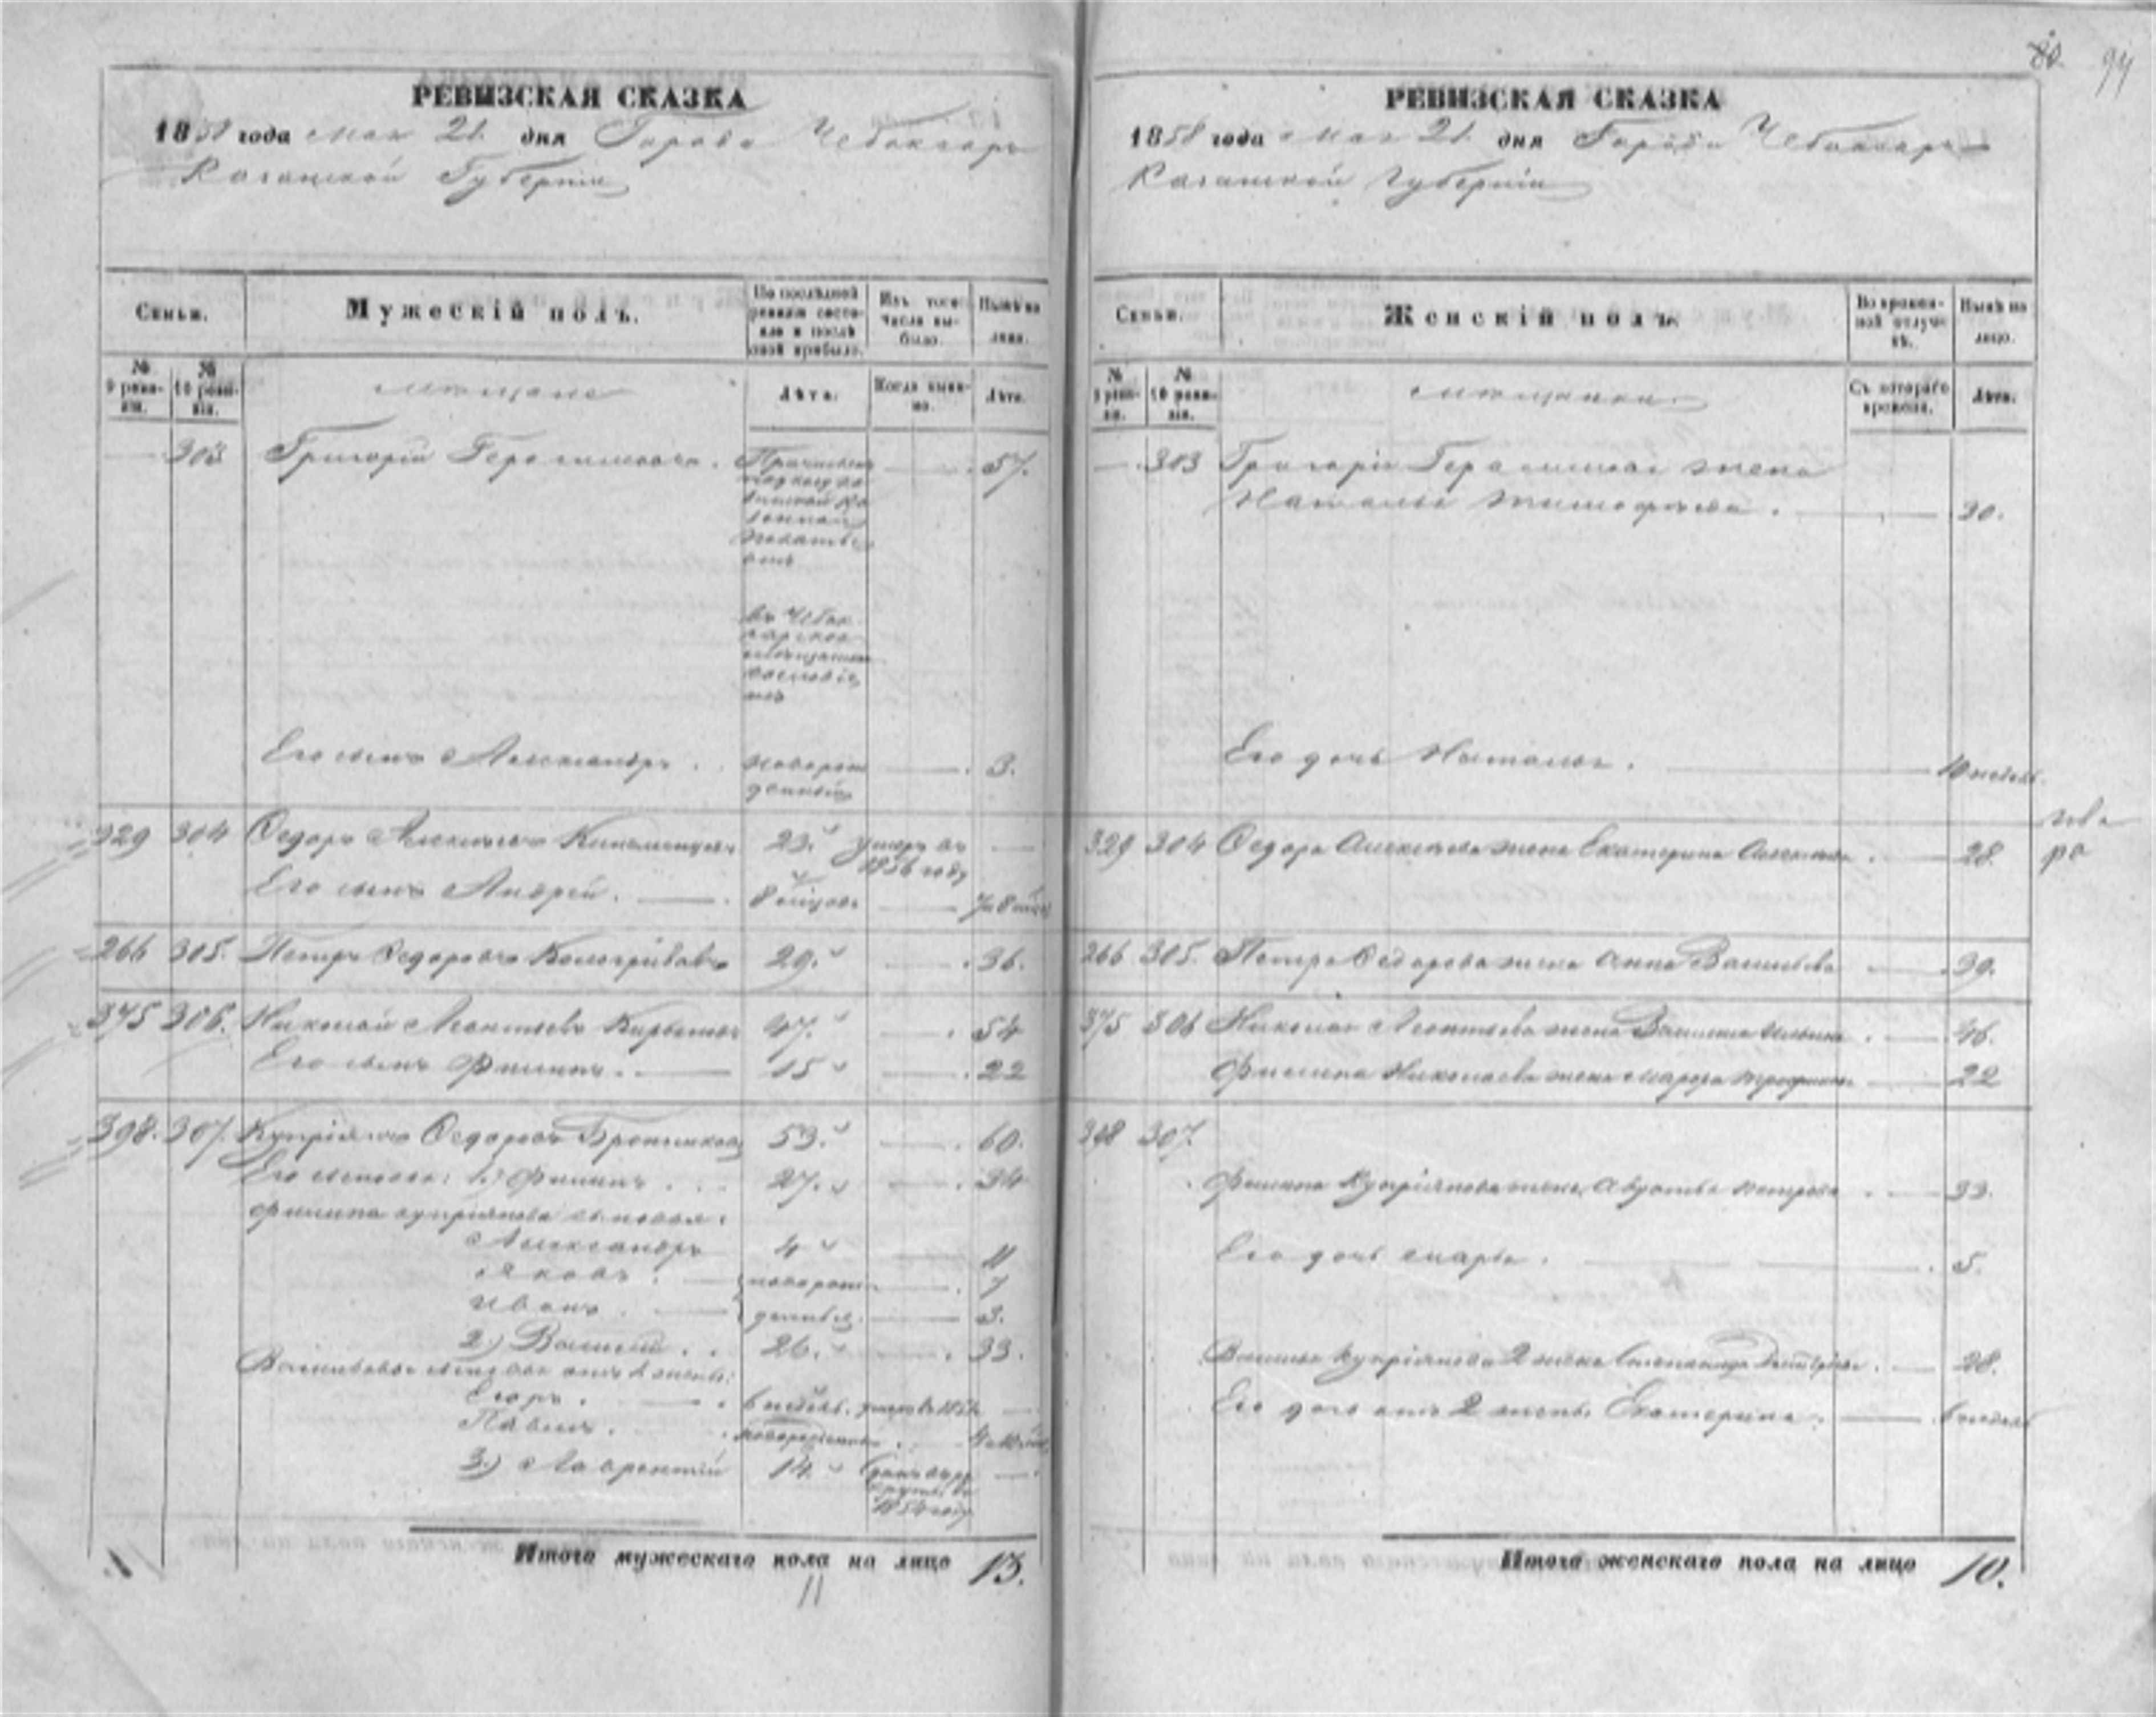 80. 94
РЕВИЗСКАЯ СКАЗКА
1858 года Мая 21 дня Города Чебоксаръ
Казанской Губерніи
Семьи.
Мужескій полъ.
По послѣдней ревизіи состояло и послѣ оной прибыло.
Изъ того числа выбыло.
Нынѣ на лицо.
№ 9 ревизіи.
№ 10 ревизіи.
Мѣщане
Лѣта.
Когда именно.
Лѣта.
303 Григорій Герасимовъ. 57.
въ Чебок
сарское
мѣщанское
Его сынъ Александръ. новорож 3.
денный
329 304 Ѳедоръ Алексѣевъ 23. умеръ въ
1856 году
Его сынъ Андрей. 8 мѣсцовъ
266 305. Петръ Ѳедоровъ Кологривовъ 29. 36.
375 306. Николай Леонтьевъ 47. 54
Его сынъ Филипъ. 15 22
398. 307. Купріянъ Ѳедоровъ 53. 60.
Его сыновья: 1.) Филипъ. 27. 34
Филипа Купріянова сыновья:
Александръ 4 11
Яковъ. новорож 7
Иванъ. денные. 3.
2.) Василій. 26. 33.
Васильевы отъ 1 жены:
Егоръ. 6 недѣль.
Павелъ. новорожденный
3.) Лаврентій 14. въ
1854 году
Итого мужескаго пола на лицо 13.
11
РЕВИЗСКАЯ СКАЗКА
1858 года Мая 21. дня Города Чебоксаръ
Казанской Губерніи
Семьи.
Женскій полъ.
Во временной отлучкѣ.
Нынѣ на лицо.
№ 9 ревизіи.
№ 10 ревизіи.
Мѣщанки
Съ котораго времени.
Лѣта.
303 Григорія Герасимова жена
Наталья Тимофѣева. 30.
Его дочь Наталья. 10 недѣль.
329 304 Ѳедора Алексѣева жена Екатерина Алексѣева. 28.
266 305. Петра Ѳедорова жена Анна Васильева 39.
375 306 Николая Леонтьева жена Василиса 46.
Филипа Николаева жена Марѳа 22
398 307.
Филипа Купріянова жена Авдотья Петрова 33.
Его дочь Марья. 5.
Василья Купріянова 2 жена Степанида Дмитріева. 28.
Его дочь отъ 2 жены Екатерина. 6 недѣль
Итого женскаго пола на лицо 10.